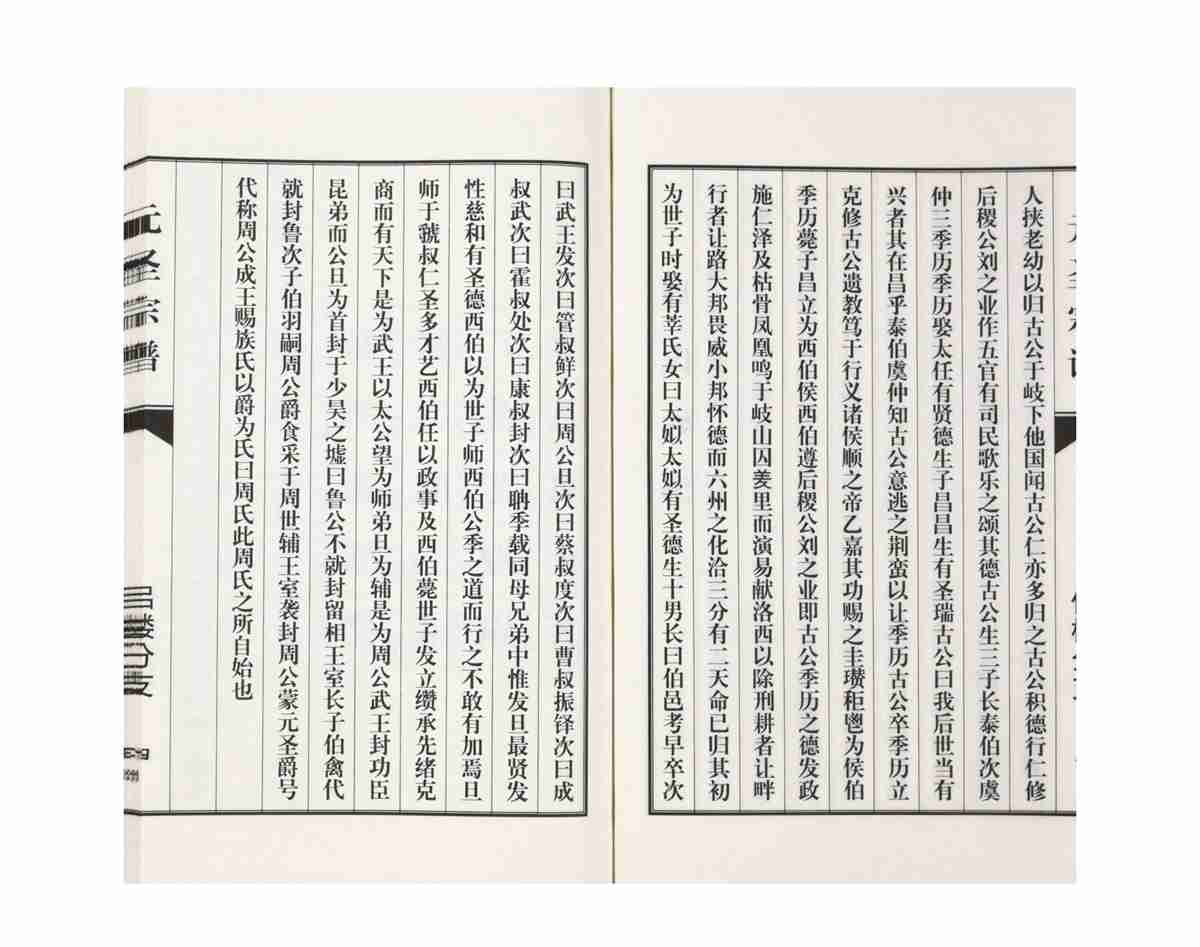 人挟老幼以归古公于岐下他国闻古公仁亦多归之古公积德行仁修
后稷公刘之业作五官有司民歌乐之颂其德古公生三子长泰伯次虞
仲三季历季历娶太任有贤德生子昌昌生有圣瑞古公曰我后世当有
兴者其在昌乎泰伯虞仲知古公意逃之荆蛮以让季历古公卒季历立
克修古公遗教笃于行义诸侯顺之帝乙嘉其功赐之圭瓒秬鬯为侯伯
季历薨子昌立为西伯侯西伯遵后稷公刘之业即古公季历之德发政
施仁泽及枯骨凤凰鸣于岐山囚羑里而演易献洛西以除刑耕者让畔
行者让路大邦畏威小邦怀德而六州之化洽三分有二天命已归其初
为世子时娶有莘氏女曰太姒太姒有圣德生十男长曰伯邑考早卒次
曰武王发次曰管叔鲜次曰周公旦次曰蔡叔度次曰曹叔振铎次曰成
叔武次曰霍叔处次曰康叔封次曰聃季载同母兄弟中惟发旦最贤发
性慈和有圣德西伯以为世子师西伯公季之道而行之不敢有加焉旦
师于虢叔仁圣多才艺西伯任以政事及西伯薨世子发立缵承先绪克
商而有天下是为武王以太公望为师弟旦为辅是为周公武王封功臣
昆弟而公旦为首封于少昊之墟曰鲁公不就封留相王室长子伯禽代
就封鲁次子伯羽嗣周公爵食采于周世辅王室袭封周公蒙元圣爵号
代称周公成王赐族氏以爵为氏曰周氏此周氏之所自始也
元圣宗谱
吕楼分支